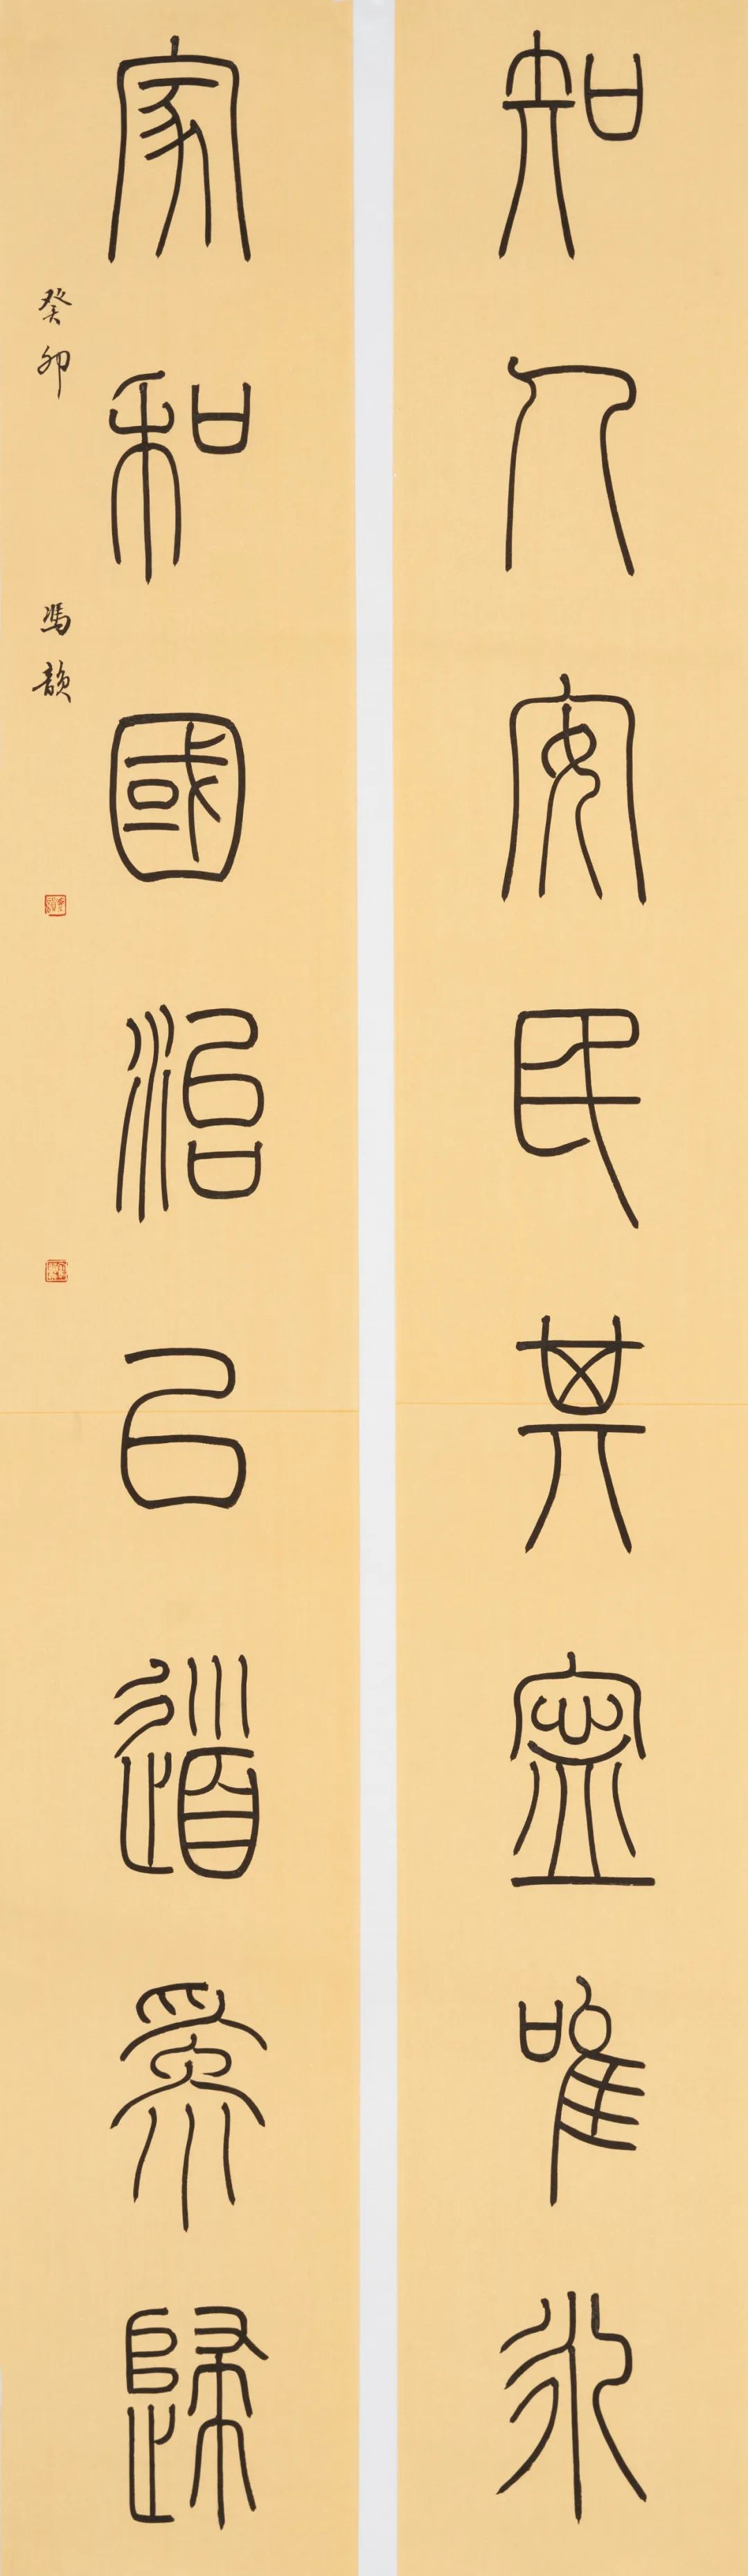 知人安民其寍唯永
家和國治以道為歸
癸卯 馮韻